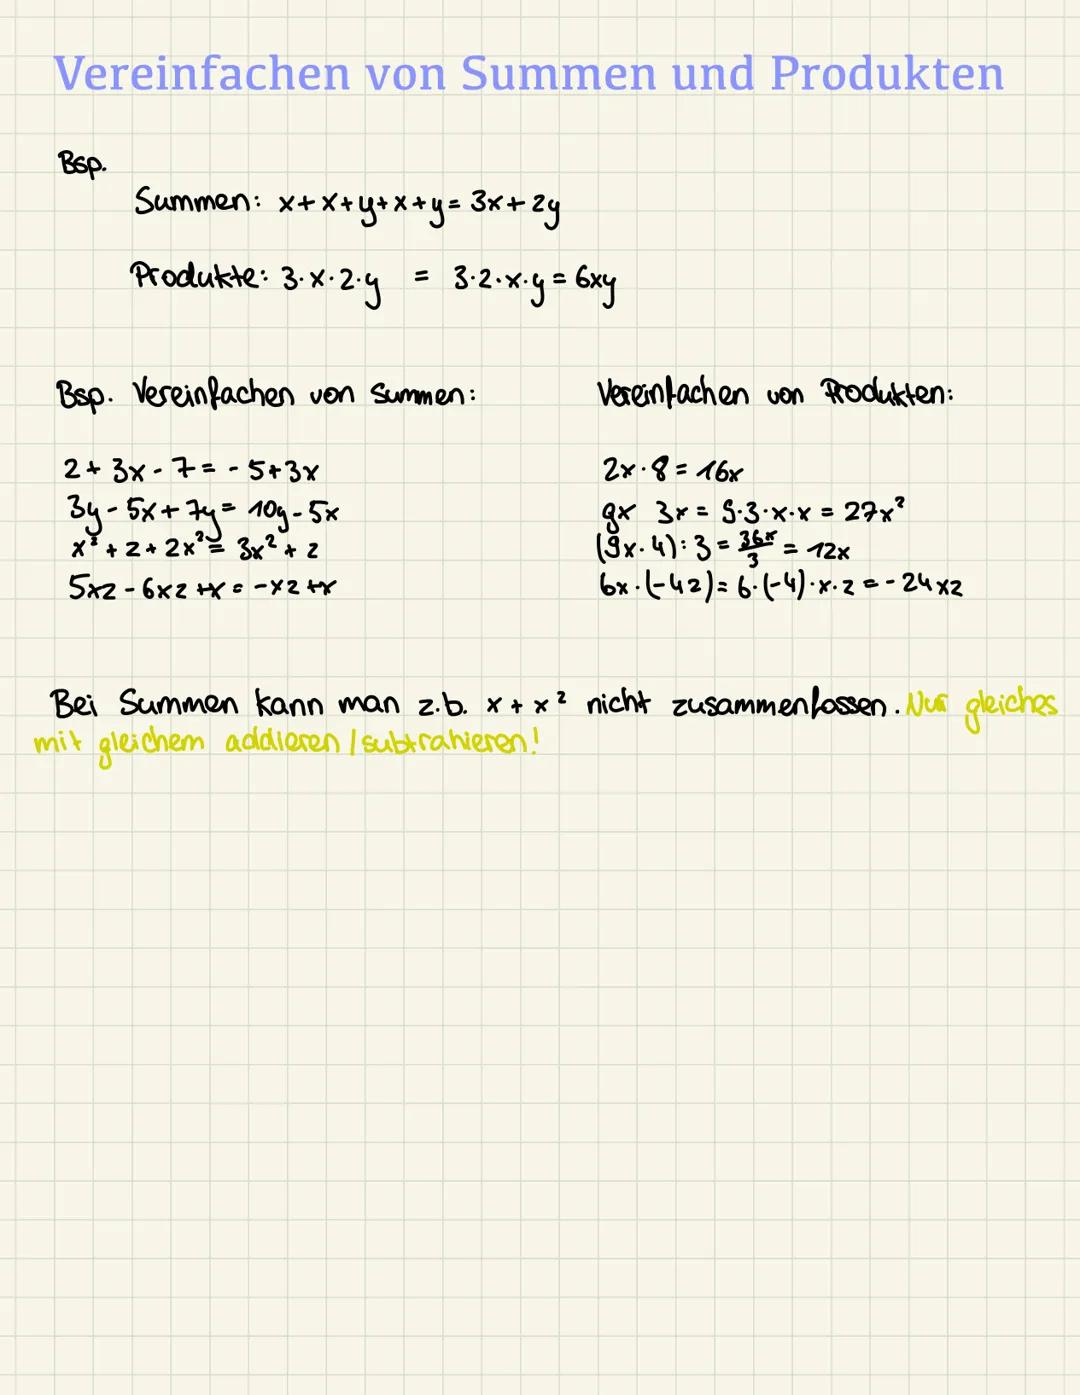 Vereinfachen von Summen und Produkten
Bsp.
Summen: x+x+y+x+y= 3x+2y
Produkte: 3·x·2·y = 3·2·x·y=6xy
Bsp. Vereinfachen von Summen:
2+3x-7=-5+3x
3y-5x+7y=10y-5x
x²+2+2x²=3x²+2
5xz-6xz+x=-xz+x
Vereinfachen von Produkten:
2x·8=16x
9x 3x=9·3·x·x=27x²
(9x·4):3=36x/3=12x
6x·(-4z)=6·(-4)·x·z=-24xz
Bei Summen kann man z.b. x+x² nicht zusammenfassen. Nur gleiches
mit gleichem addieren/subtrahieren!